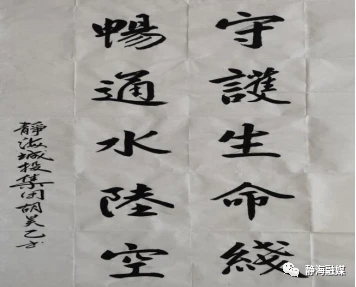 守護生命綫
暢通水陸空
靜海城投集团胡昊乙书
静海融媒